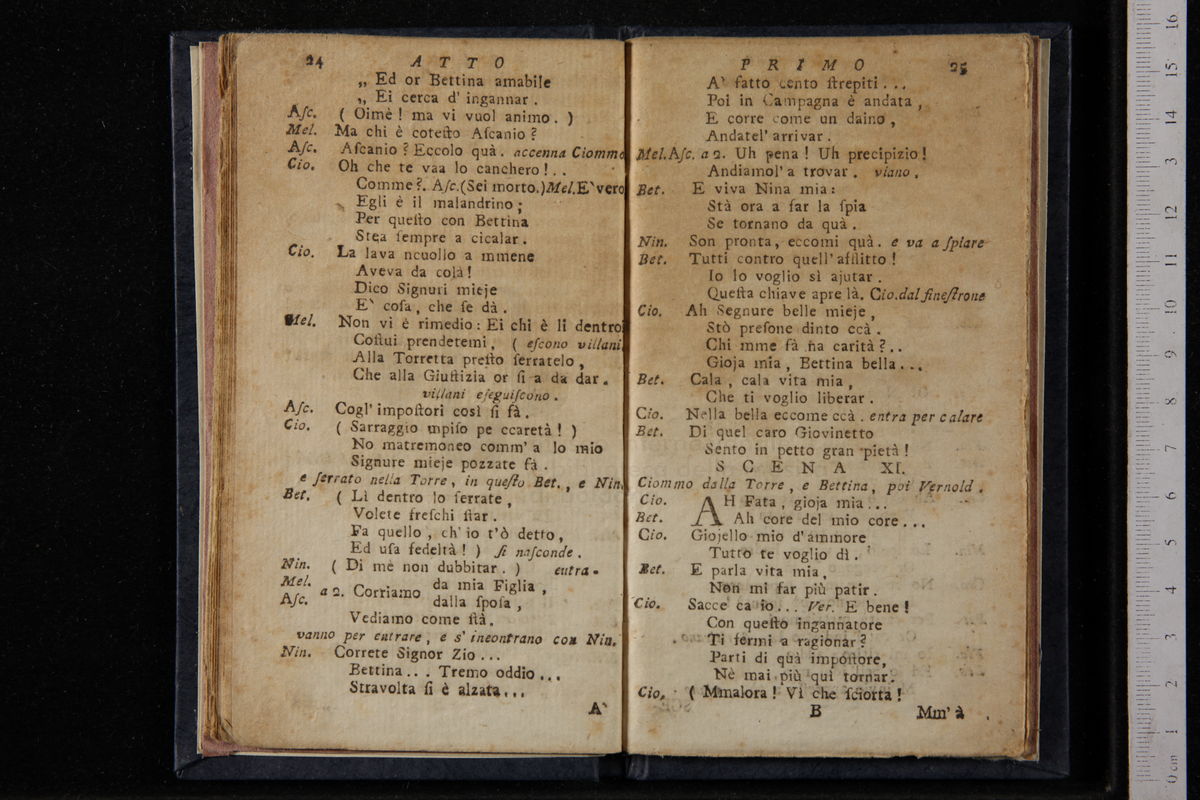 24 ATTO
„ Ed or Bettina amabile
„ Ei cerca d' ingannar .
Aſc. ( Oimè ! ma vi vuol animo . )
Mel. Ma chi è coteſto Aſcanio ?
Aſc. Aſcanio ? Eccolo quà . accenna Ciommo
Cio. Oh che te vaa lo canchero ! . .
Comme ?. Aſc.(Sei morto.)Mel.E` vero
Egli è il malandrino ;
Per queſto con Bettina
Stea ſempre a cicalar .
Cio. La lava ncuollo a mmene
Aveva da colà !
Dico Signuri mieje
E` coſa , che ſe dà .
Mel. Non vi è rimedio : Ei chi è lì dentro
Coſtui prendetemi , ( eſcono villani
Alla Torretta preſto ſerratelo ,
Che alla Giuſtizia or ſi a da dar .
villani eſeguiſcono .
Aſc. Cogl' impoſtori così ſi fà .
Cio. ( Sarraggio mpiſo pe ccaretà ! )
No matremoneo comm' a lo mio
Signure mieje pozzate fà .
e ſerrato nella Torre , in queſto Bet. , e Nin.
Bet. ( Lì dentro lo ſerrate ,
Volete freſchi ſtar .
Fa quello , ch' io t'ò detto ,
Ed uſa fedeltà ! ) ſi naſconde .
Nin. ( Di me non dubbitar . ) entra .
Mel. Aſc. a 2. Corriamo da mia Figlia , dalla ſpoſa ,
Vediamo come ſtà .
vanno per entrare , e s' incontrano con Nin.
Nin. Correte Signor Zio . . .
Bettina . . . Tremo oddio . . .
Stravolta ſi è alzata . . .
A`
PRIMO 25
A` fatto cento ſtrepiti . . .
Poi in Campagna è andata ,
E corre come un daino ,
Andatel' arrivar .
Mel.Aſc. a 2. Uh pena ! Uh precipizio !
Andiamol' a trovar . viano .
Bet. E viva Nina mia :
Stà ora a far la ſpia
Se tornano da quà .
Nin. Son pronta , eccomi quà . e va a ſpiare
Bet. Tutti contro quell' afflitto !
Io lo voglio sì ajutar .
Queſta chiave apre là. Cio.dal fineſtrone
Cio. Ah Segnure belle mieje ,
Stò preſone dinto ccà .
Chi mme fà na carità ? . .
Gioja mia , Bettina bella . . .
Bet. Cala , cala vita mia ,
Che ti voglio liberar .
Cio. Nella bella eccome ccà . entra per calare
Bet. Di quel caro Giovinetto
Sento in petto gran pietà !
SCENA XI.
Ciommo dalla Torre , e Bettina , poi Vernold .
Cio. AH Fata , gioja mia . . .
Bet. Ah core del mio core . . .
Cio. Giojello mio d'ammore
Tutto te voglio dì .
Bet. E parla vita mia ,
Non mi far più patir .
Cio. Sacce ca io . . . Ver. E bene !
Con queſto ingannatore
Ti fermi a ragionar ?
Parti di quà impoſtore,
Nè mai più quì tornar.
Cio. ( Mmalora ! Vì che ſciorta !
B Mm' à
0 cm 1 2 3 4 5 6 7 8 9 10 11 12 13 14 15 16